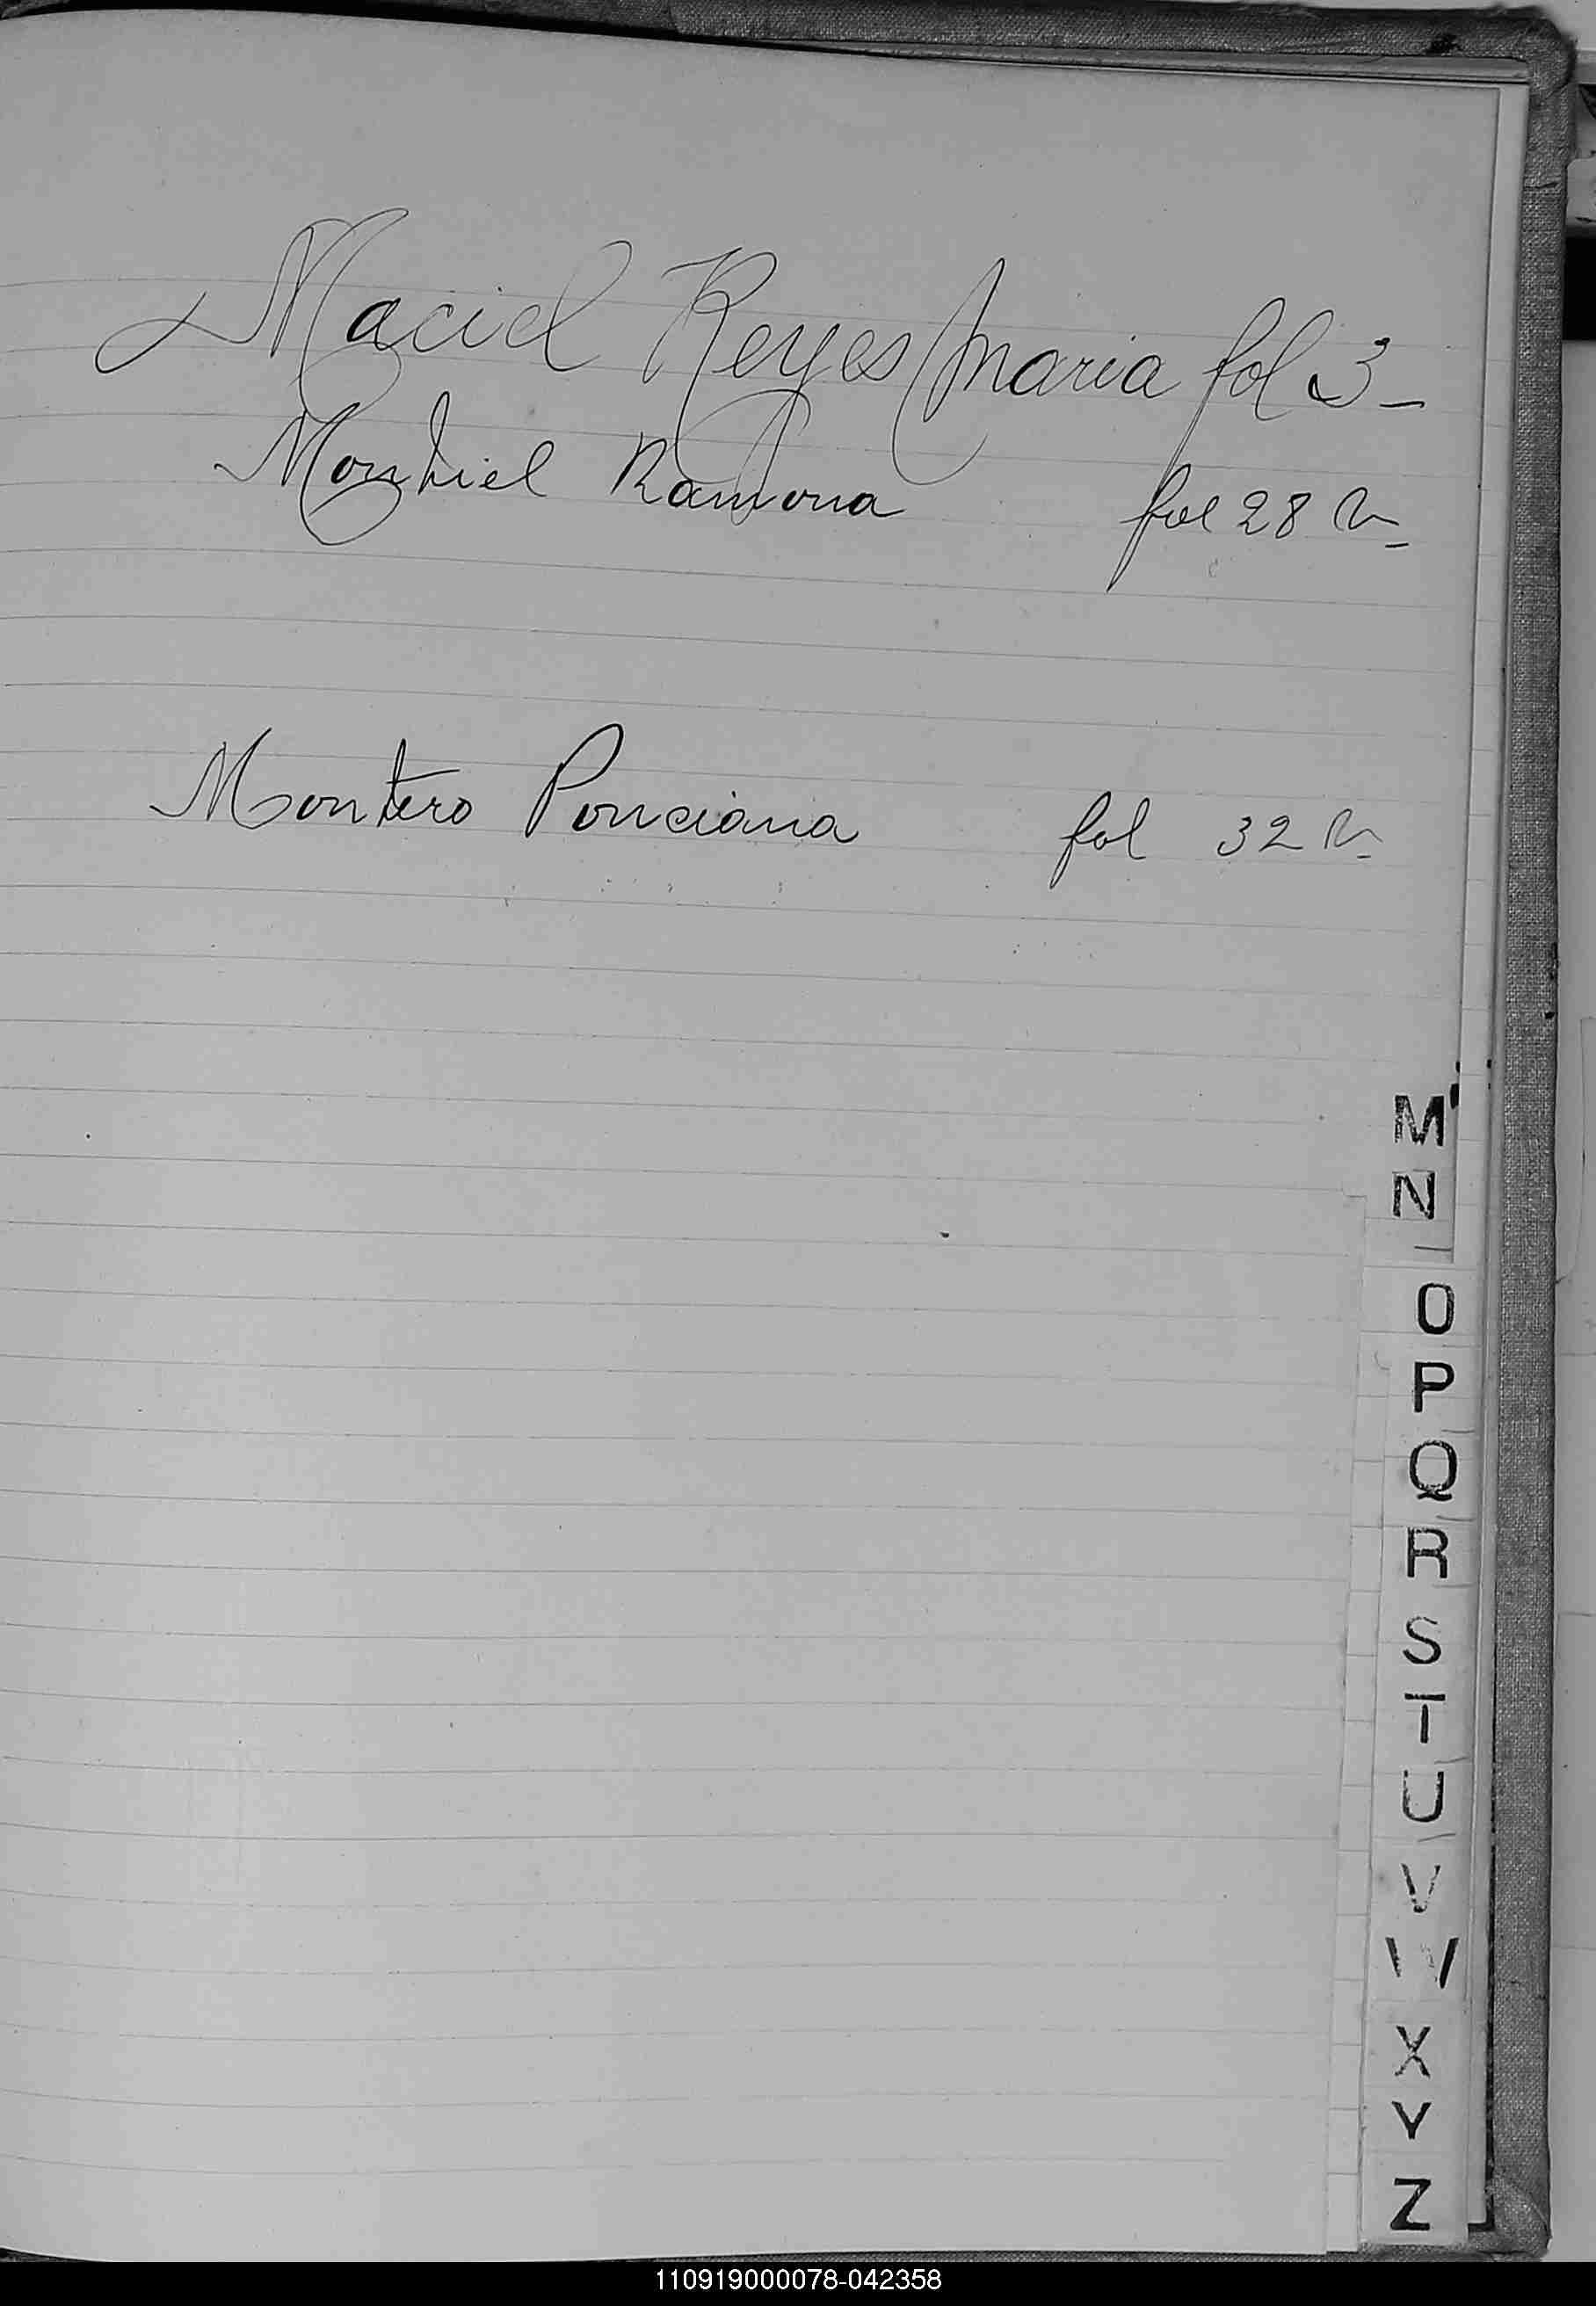 Maciel Reyes Maria fol 3_
Montiel Ramona fol 28 v_
Montero Ponciana fol 32 v_
M
N
O
P
Q
R
S
T
U
V
W
X
Y
Z
110919000078-042358